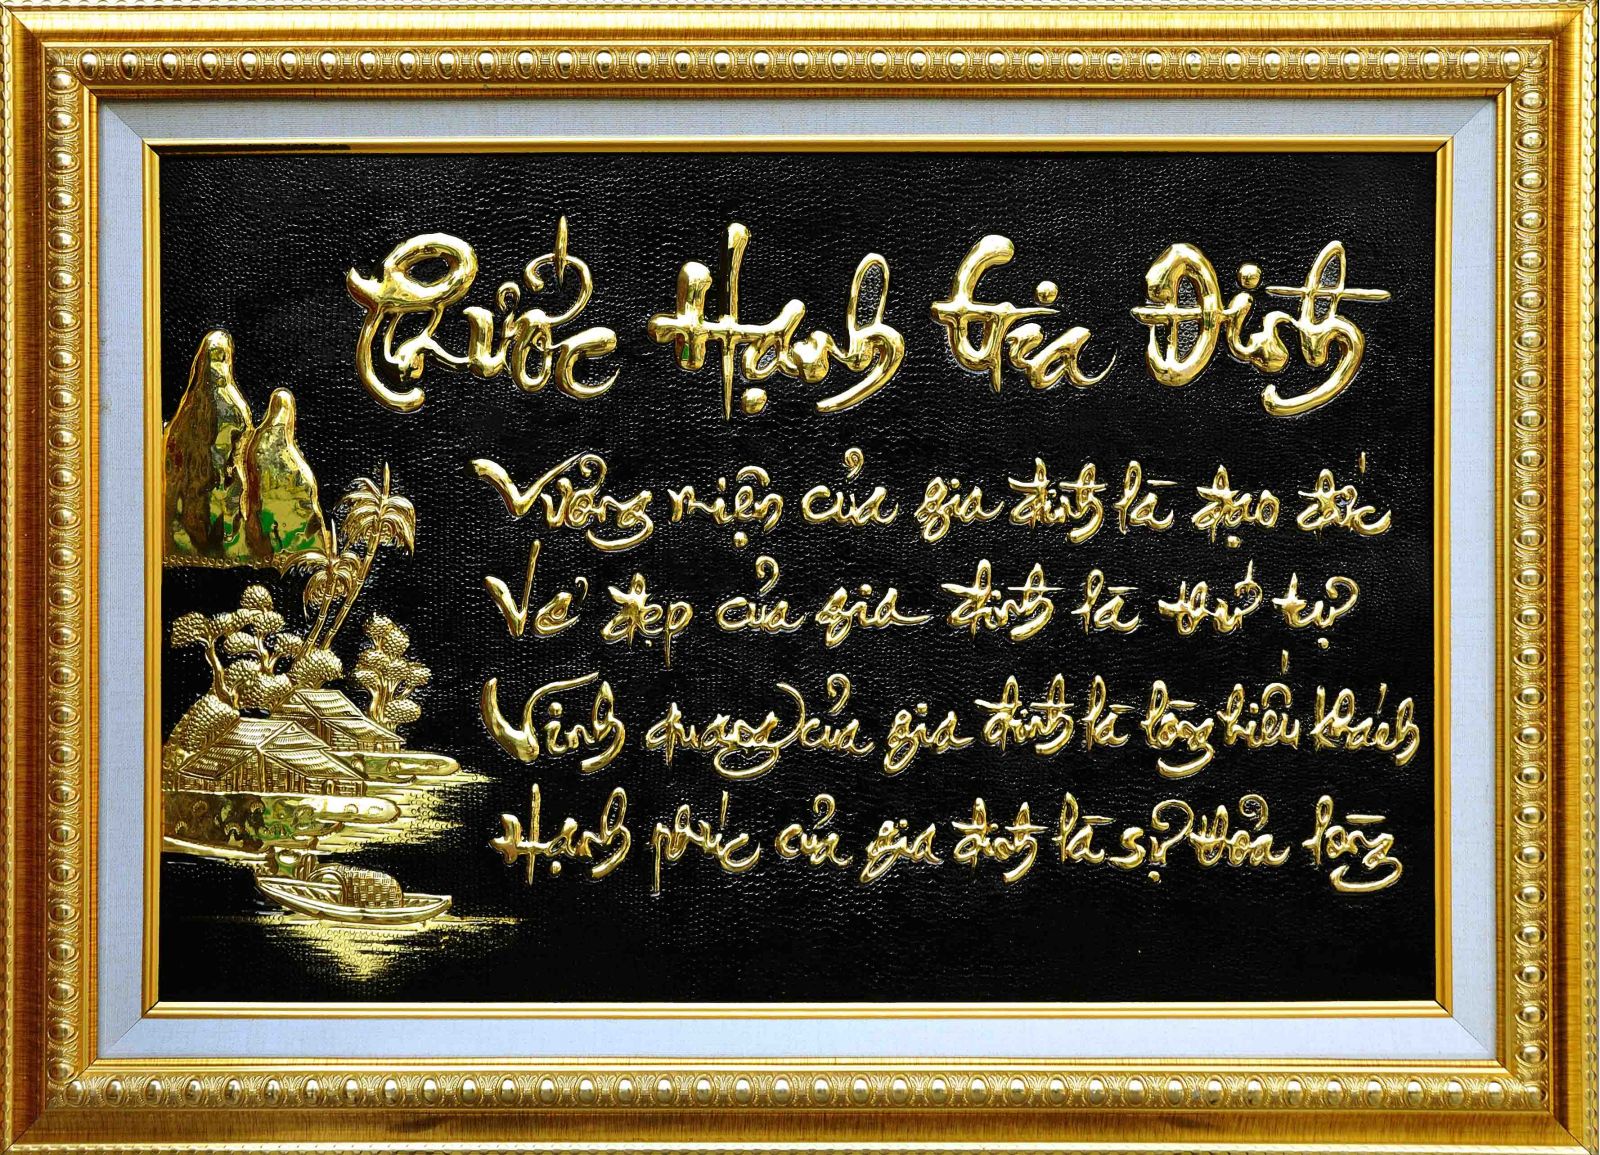 Phước Hạnh Gia Đình
Vương miện của gia đình là đạo đức
Vẻ đẹp của gia đình là thứ tự
Vinh quang của gia đình là lòng hiếu khách
Hạnh phúc của gia đình là sự thỏa lòng